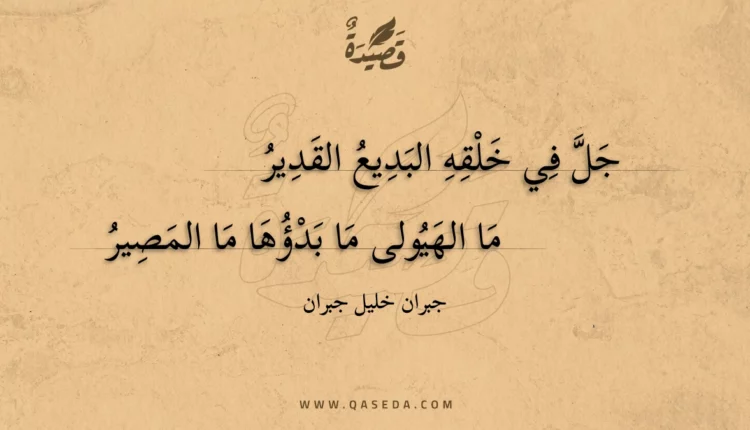 قَصِيدَةٌ
جَلَّ فِي خَلْقِهِ البَدِيعُ القَدِيرُ
مَا الهَيُولى مَا بَدْؤُهَا مَا المَصِيرُ
جبران خليل جبران
WWW.QASEDA.COM